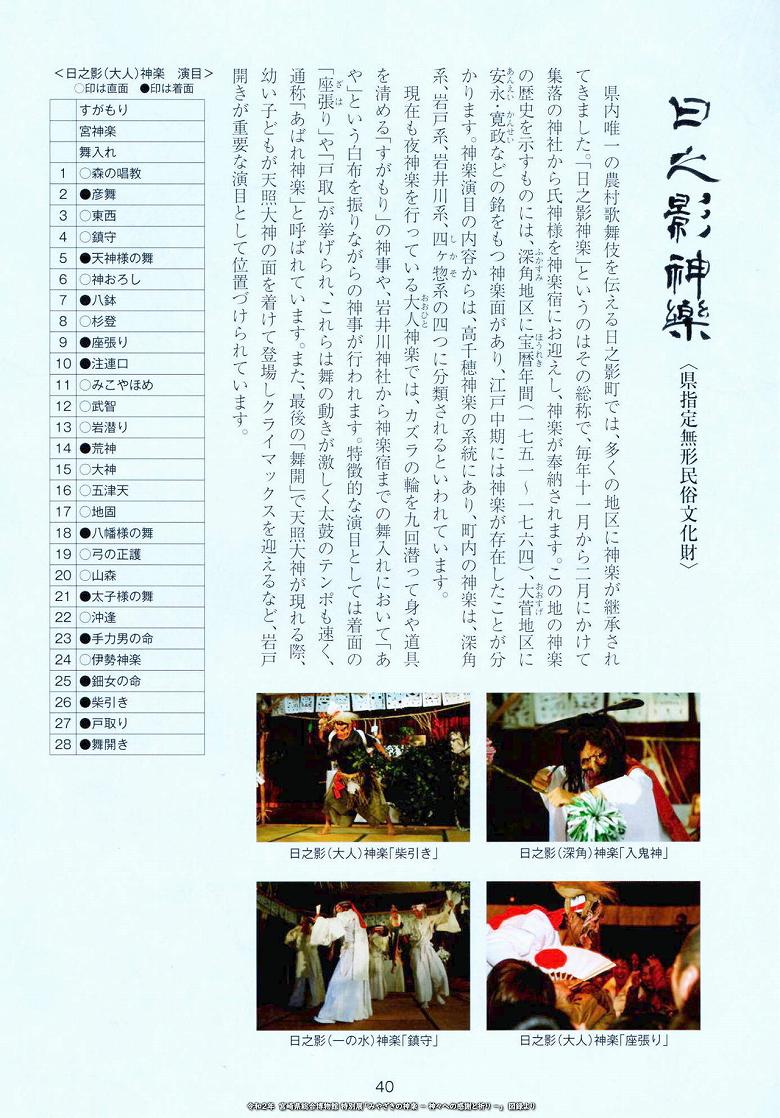 日之影神樂
〈県指定無形民俗文化財〉
県内唯一の農村歌舞伎を伝える日之影町では、多くの地区に神楽が継承され
てきました。「日之影神楽」というのはその総称で、毎年十一月から二月にかけて
集落の神社から氏神様を神楽宿にお迎えし、神楽が奉納されます。この地の神楽
の歴史を示すものには、深角地区に宝暦年間(一七五一〜一七六四)、大菅地区に
ふかすみ
ほうれき
おおすげ
安永・寛政などの銘をもつ神楽面があり、江戸中期には神楽が存在したことが分
あんえい
かんせい
かります。神楽演目の内容からは、高千穂神楽の系統にあり、町内の神楽は、深角
系、岩戸系、岩井川系、四ヶ惣系の四つに分類されるといわれています。
しかそ
現在も夜神楽を行っている大人神楽では、カズラの輪を九回潜って身や道具
おおひと
を清める「すがもり」の神事や、岩井川神社から神楽宿までの舞入れにおいて「あ
や」という白布を振りながらの神事が行われます。特徴的な演目としては着面の
「座張り」や「戸取」が挙げられ、これらは舞の動きが激しく太鼓のテンポも速く、
ざは
通称「あばれ神楽」と呼ばれています。また、最後の「舞開」で天照大神が現れる際、
幼い子どもが天照大神の面を着けて登場しクライマックスを迎えるなど、岩戸
開きが重要な演目として位置づけられています。
<日之影(大人)神楽 演目>
○印は直面 ●印は着面
すがもり
宮神楽
舞入れ
1 ○森の唱教
2 ●彦舞
3 ○東西
4 ○鎮守
5 ●天神様の舞
6 ○神おろし
7 ●八鉢
8 ○杉登
9 ●座張り
10 ●注連口
11 ○みこやほめ
12 ○武智
13 ○岩潜り
14 ●荒神
15 ○大神
16 ○五津天
17 ○地固
18 ●八幡様の舞
19 ○弓の正護
20 ○山森
21 ●太子様の舞
22 ○沖逢
23 ●手力男の命
24 ○伊勢神楽
25 ●鈿女の命
26 ●柴引き
27 ●戸取り
28 ●舞開き
日之影(大人)神楽「柴引き」
日之影(深角)神楽「入鬼神」
日之影(一の水)神楽「鎮守」
日之影(大人)神楽「座張り」
40
令和2年 宮崎県総合博物館 特別展「みやざきの神楽 − 神々への感謝と祈り −」 図録より